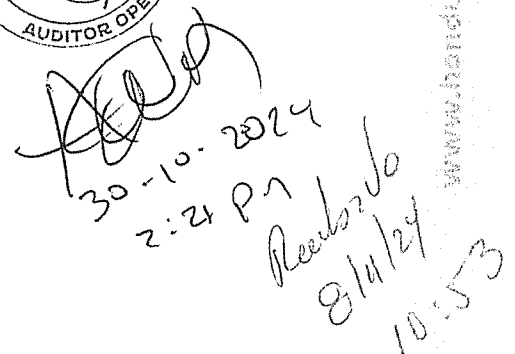 AUDITOR OPE
30-10-2024
2:21 Pm
Recibido
8/11/24
10:53
www.